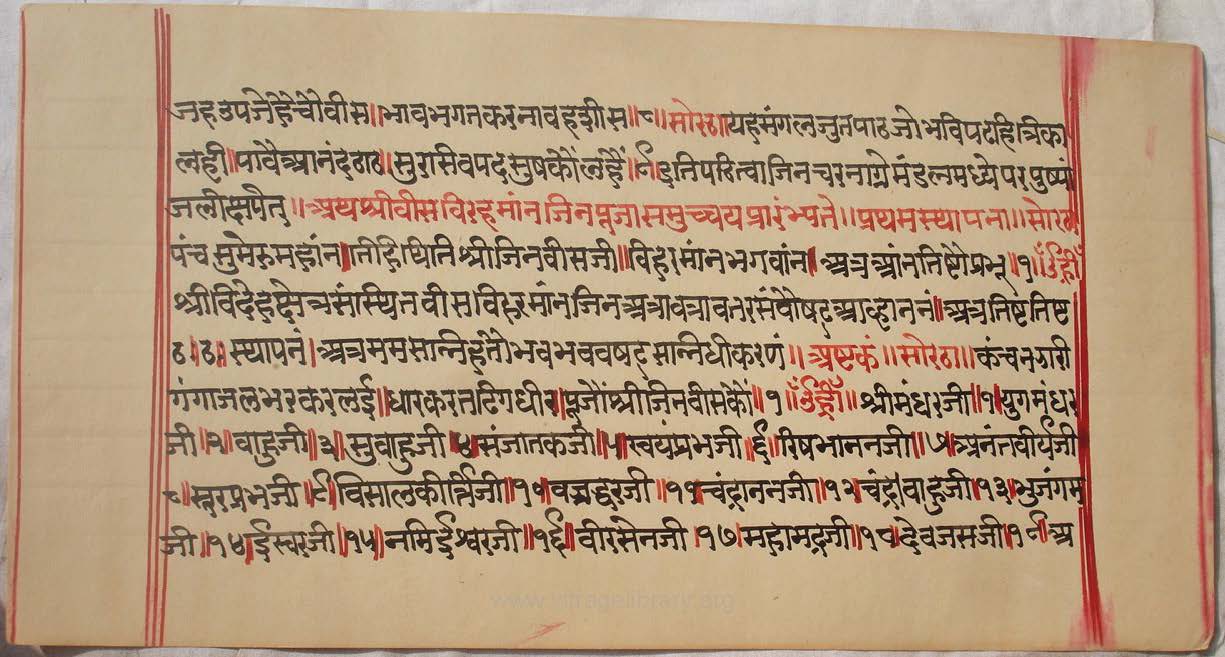 जह उपजेहैचौवीस॥भावभगतकरनावहशीस॥८॥सोरठा॥यहमंगलजुतपाठजोभविपढहित्रिका
लही॥पावैआनंदठाठ॥सुरगसिवपदसुषकौंलहैं॥९॥इतिपठित्वाजिनचरनाग्रेमंडलमध्येपरपुष्पां
जलींक्षपैत्॥अथश्रीवीसविरहमांनजिनपूजासमुच्चयप्रारंभ्पते॥प्रथमस्थापना॥सोरठा
पंचसुमेरुमहांन॥तीहिथितिश्रीजिनवीसजी॥विहरमांनभगवांन॥अत्रआंनतिष्टोप्रभू॥१॥ॐह्रीँ
श्रीविदेहक्षेत्रसांस्थितवीसविहरमांनजिनअत्रावत्रावतरसंवौषट्आव्हाननं॥अत्रतिष्टतिष्ट
ठः।ठः॥स्थापनं॥अत्रममसान्निहंतोभवभववषट्सान्निधीकरणं॥अष्टकं॥सोरठा॥कंचनझारी
गंगाजलभरकरलई॥धारकरनढिगधीर॥पूजौंश्रीजिनवीसकौं॥१॥ॐह्रीँ॥श्रीमंधरजी॥१॥युगमंधर
जी॥२॥वाहुजी॥३॥सुवाहुजी॥४॥संजातकजी॥५॥स्वयंप्रभजी॥६॥रिषभाननजी॥७॥अनंतवीर्यजी
८॥सूरप्रभजी॥९॥विसालकीर्त्तिजी॥१०॥वज्रद्धरजी॥११॥चंद्राननजी॥१२॥चंद्रावाहुजी॥१३॥भुजंगम
जी॥१४॥ईस्वरजी॥१५॥नमिईश्वरजी॥१६॥वीरसेनजी॥१७॥महाभद्रजी॥१८॥देवजसजी॥१९॥अ
www.vitragelibrary.org